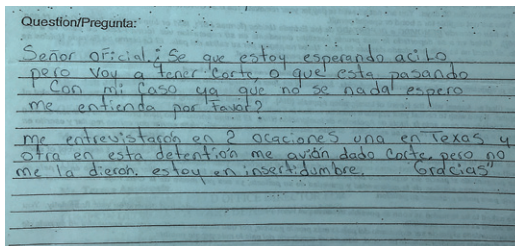 Question/Pregunta:
Señor oficial: Se que estoy esperando acilo
pero voy a tener corte, o que esta pasando
Con mi caso ya que no se nada espero
me entienda por favor?
me entrevistarón en 2 ocaciones una en Texas y
otra en esta detention me avián dado corte, pero no
me la dieron. estoy en insertidumbre. Gracias"